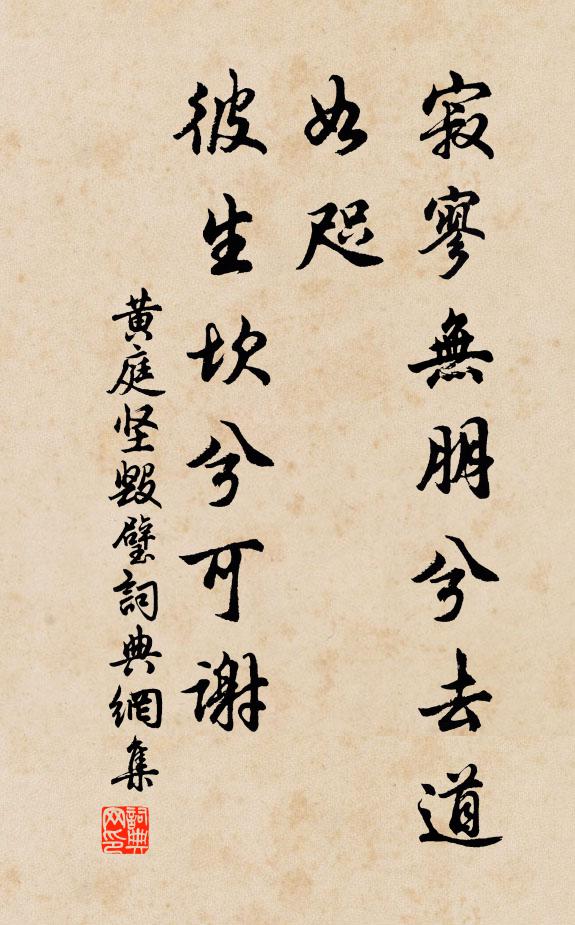 寂寥無朋兮去道
如咫
彼生坎兮可謝
黄庭坚毁璧詞典網集
詞典网印